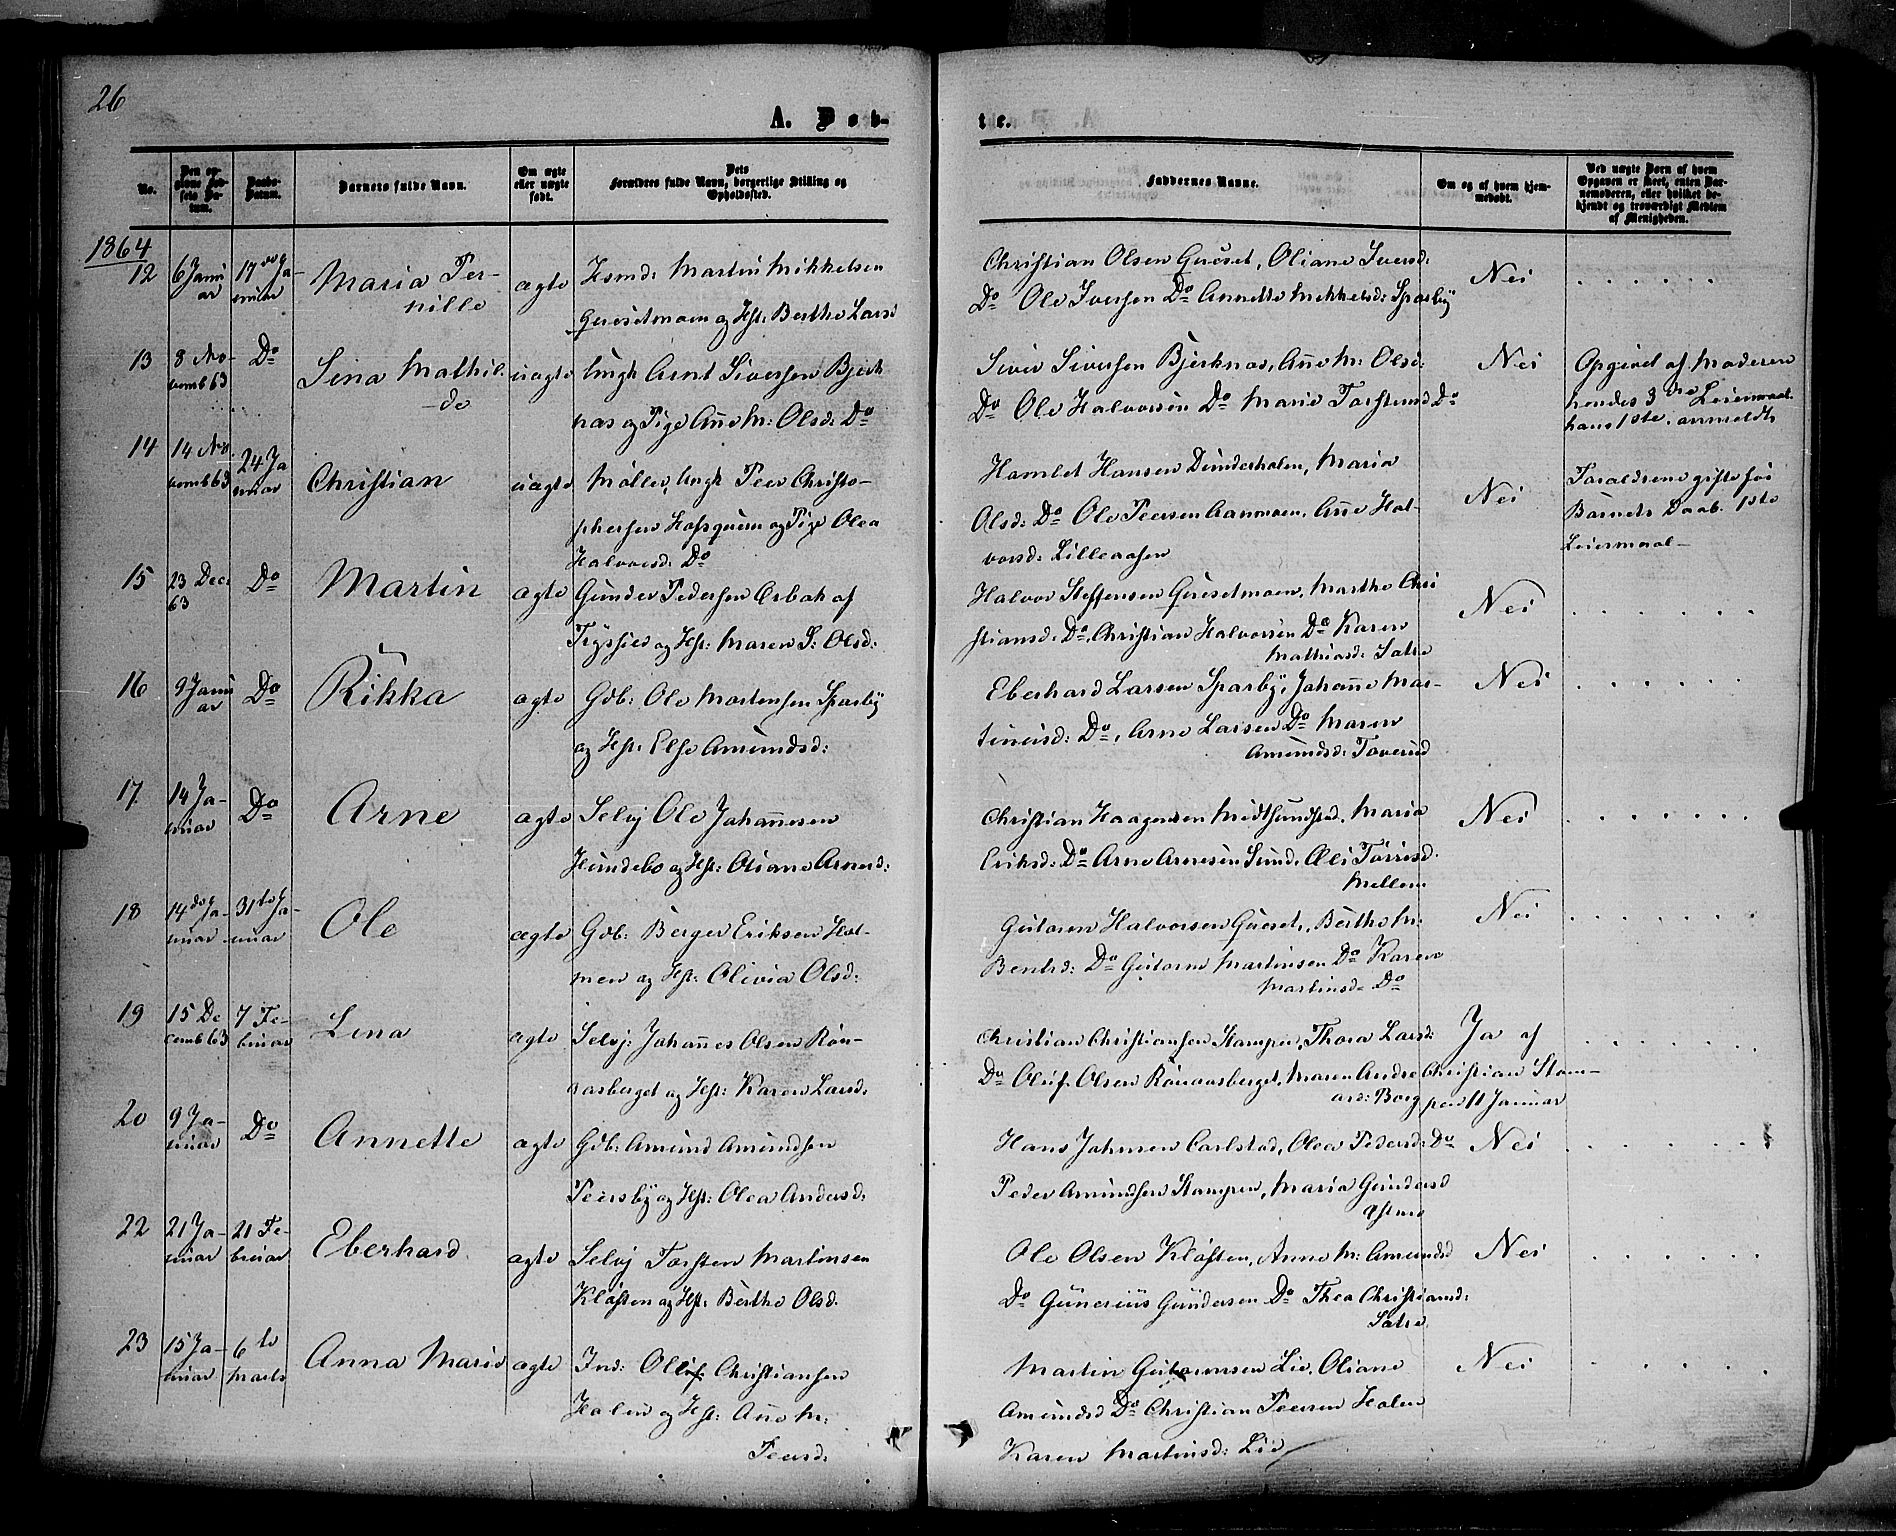 26
A. Døb-
te.
No.
Den op-
givne Fød-
sels Da-
tum.
Daabs-
Datum.
Barnets fulde Navn.
Om ægte
eller uægte
født.
Dets
Forældres fulde Navn, borgerlige Stilling og
Opholdssted.
Faddernes Navne.
Om og af hvem hjem-
medøbt.
Ved uægte Børn af hvem
Opgaven er skeet, enten Bar-
nemoderen, eller hvilket be-
kjendt og troværdigt Medlem
af Menigheden.
1864
12
6 Janu
ar
17 Ja-
nuar
Maria Per-
nille
ægte
Huusmd: Martin Mikkelsen
og Hst: Berthe Larsd
Christian Olsen Grøset, Oliane Iversd:
Do Ole Iversen Do Annette Mikkelsd: Sparby
Nei
13
8 No-
vemb 63
Do
Lina Mathil-
de
uægte
Ungk Arnt Siversen Bjerk
næs og Pige Anne M: Olsd: Do
Siver Siversen Bjerknæs, Anne M: Olsd:
Do Ole Halvorsen Do Marie Torstensd Do
Nei
Opgivet af Moderen
hendes 3die Leiermaal
hans 1ste. anmeldt
14
14 No
vemb 63
24 Ja
nuar
Christian
uægte
Møller, Ungk Peer Christo-
phersen og Pige Olea
Halvorsd: Do
Hamlet Hansen Dunderholen, Maria
Olsd: Do Ole Peersen Aanmoen, Anne Hal-
vorsd: Lilleaasen
Nei
Forældrene gifte før
Barnets Daab. 1ste
Leiermaal-
15
23 Dec:
63
Do
Martin
ægte
Gunder Pedersen Orbak af
Trysild og Hst: Maren S: Olsd:
Halvor Steffensen Grøsetmoen, Marthe Chri
stiansd: Do, Christian Halvorsen Do Karen
Mathiasd: Sætre
Nei
16
9 Janu
ar
Do
Rikka
ægte
Gdb: Ole Mortensen Sparby
og Hst: Else Amundsd:
Eberhard Larsen Sparby, Johanne Mar-
tinusd: Do, Arne Larsen Do Maren
Amundsd: Toverud
Nei
17
14 Ja-
nuar
Do
Arne
ægte
Selvj Ole Johannesen
Hundebo og Hst: Oliane Arnesd:
Christian Haagensen Midtsundstad, Maria
Eriksd: Do Arne Arnesen Sund, Oli Tørrisd.
Mellem
Nei
18
14de Ja-
nuar
31te Ja-
nuar
Ole
ægte
Gdb: Berger Eriksen Hol-
men og Hst: Olivia Olsd:
Gutorm Halvorsen Grøset, Berthe M:
Bentsd: Do Gutorm Martinsen Do Karen
Martinsd: Do
Nei
19
15 De
cemb 63
7 Fe-
bruar
Lina
ægte
Selvj: Johannes Olsen Røn-
aasberget og Hst: Karen Larsd:
Christian Christiansen Stampen, Thora Larsd:
Do Oluf Olsen Rønaasberget, Maren Andre
asd: Berg
Ja af
Christian Stam-
pen 11 Januar
20
9 Ja-
nuar
Do
Annette
ægte
Gdb: Amund Amundsen
Peersby og Hst: Olea Andersd:
Hans Johnsen Carlstad, Olea Pedersd: Do
Peder Amundsen Stampen, Maria Gundersd
Nei
22
21 Ja-
nuar
21 Fe-
bruar
Eberhard.
ægte
Selvj Torsten Martinsen
Kløften og Hst: Berthe Olsd.
Ole Olsen Kløften, Anne M: Amundsd
Do Gunerius Gundersen Do Thea Christiansd:
Sætre
Nei
23
15 Ja-
nuar
6te
Marts
Anna Maria
ægte
Ind: Oluf Christiansen
Holen og Hst: Anne M:
Peersd:
Martin Gutormsen Lie, Oliane
Amundsd Do Christian Peersen Holen
Karen Martinsd: Lie
Nei